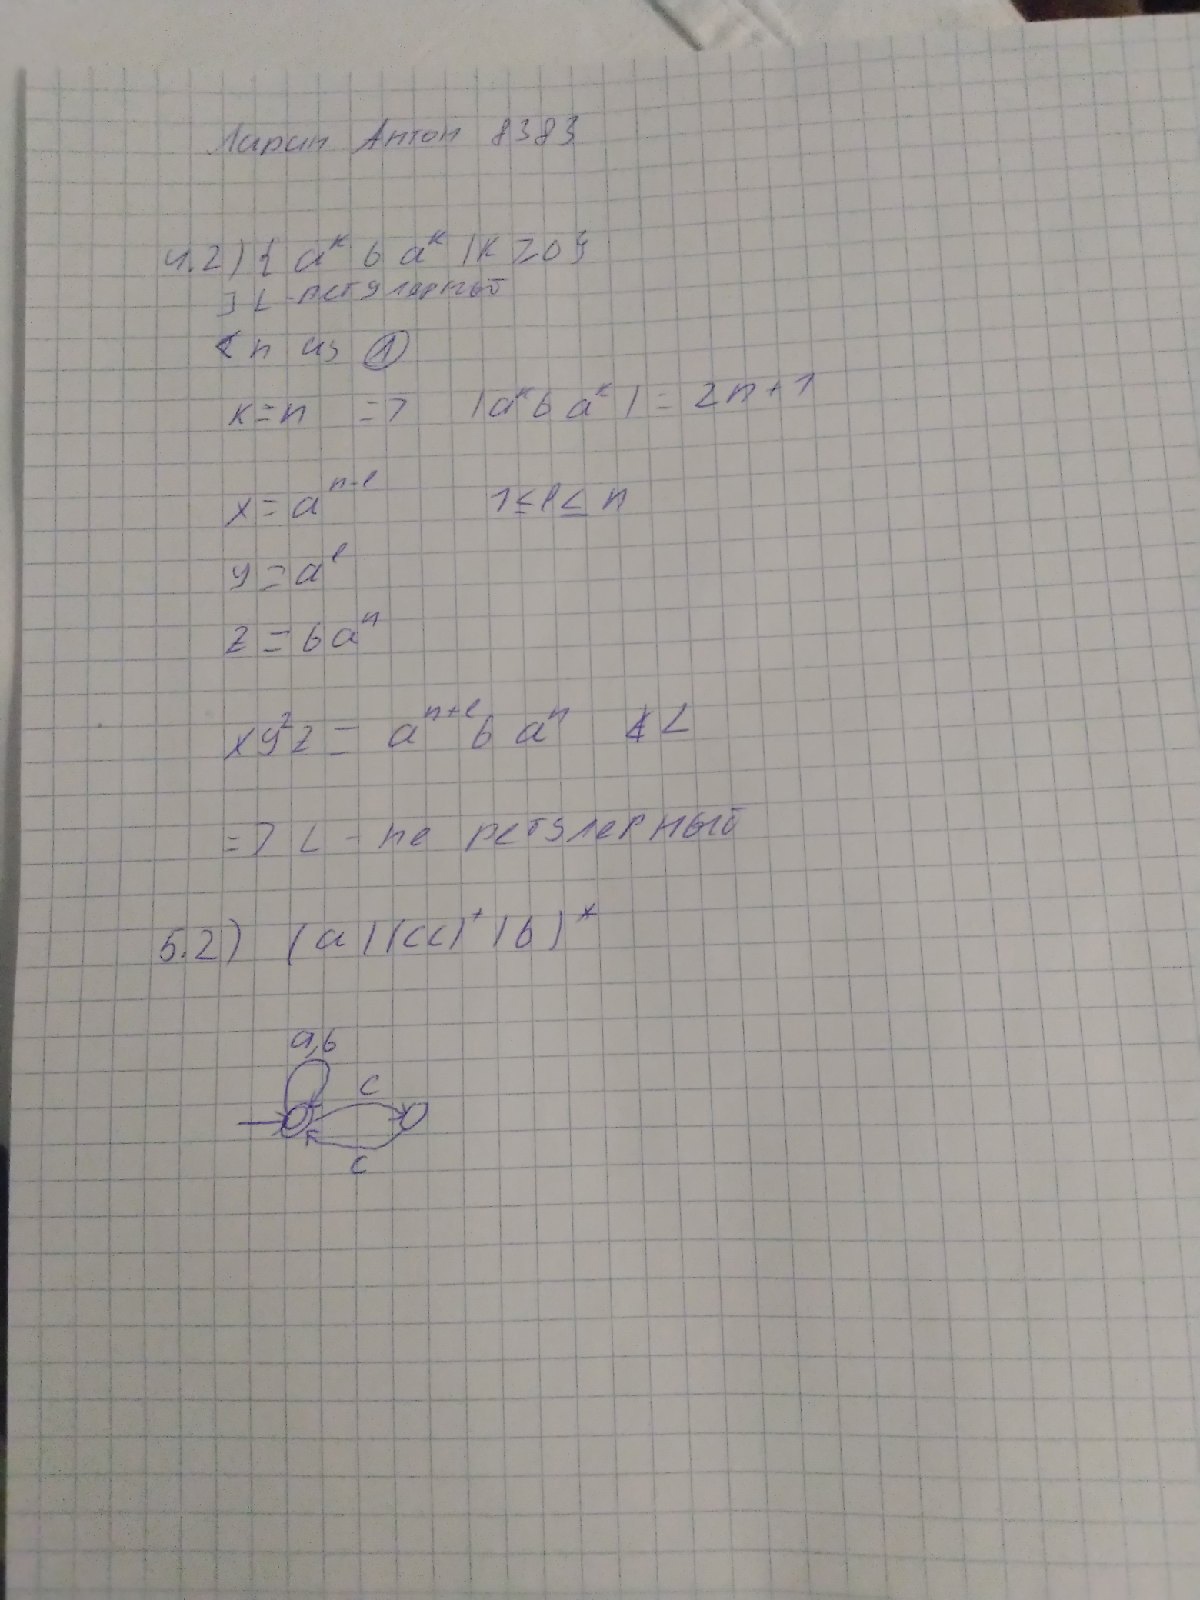 Ларин Антон 8383
4.2) { a^k b a^k | k ≥ 0 }
] L - регулярный
∢ n из ①
k = n => |a^k b a^k| = 2n+1
x = a^{n-l} 1 ≤ l ≤ n
y = a^l
z = b a^n
x y^2 z = a^{n+l} b a^n ∉ L
=> L - не регулярный
5.2) (a|(cc)^+|b)^*
a,b
c
c